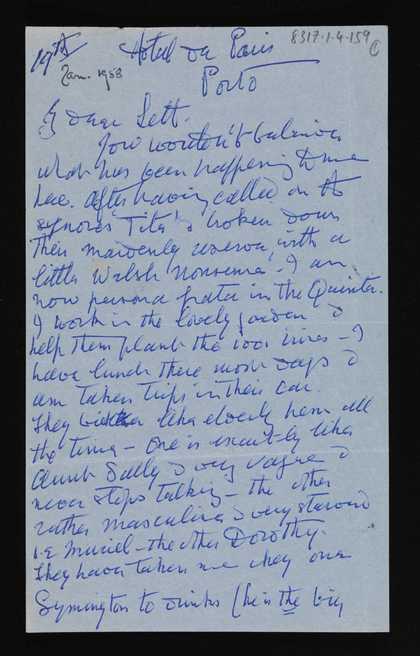 19th Hotel de Paris 8317.1.4.159
Jan. 1958 Porto
My dear Lett.
You wouldn't believe
what has been happening to me
here. After having called on the
Signores Tito's & broken down
their maidenly reserve with a
little Welsh nonsense - I am
now persona grata in the Quinta.
I work in the lovely garden &
help them plant the 1001 trees - I
have lunch there most days &
am taken trips in their car.
They are like elderly hens all
the time - one is exactly like
Aunt Sally & very vague &
never stops talking - the other
rather masculine & very starved
i.e. Muriel - the other Dorothy.
They have taken me to one
Symington to drinks (he is the big